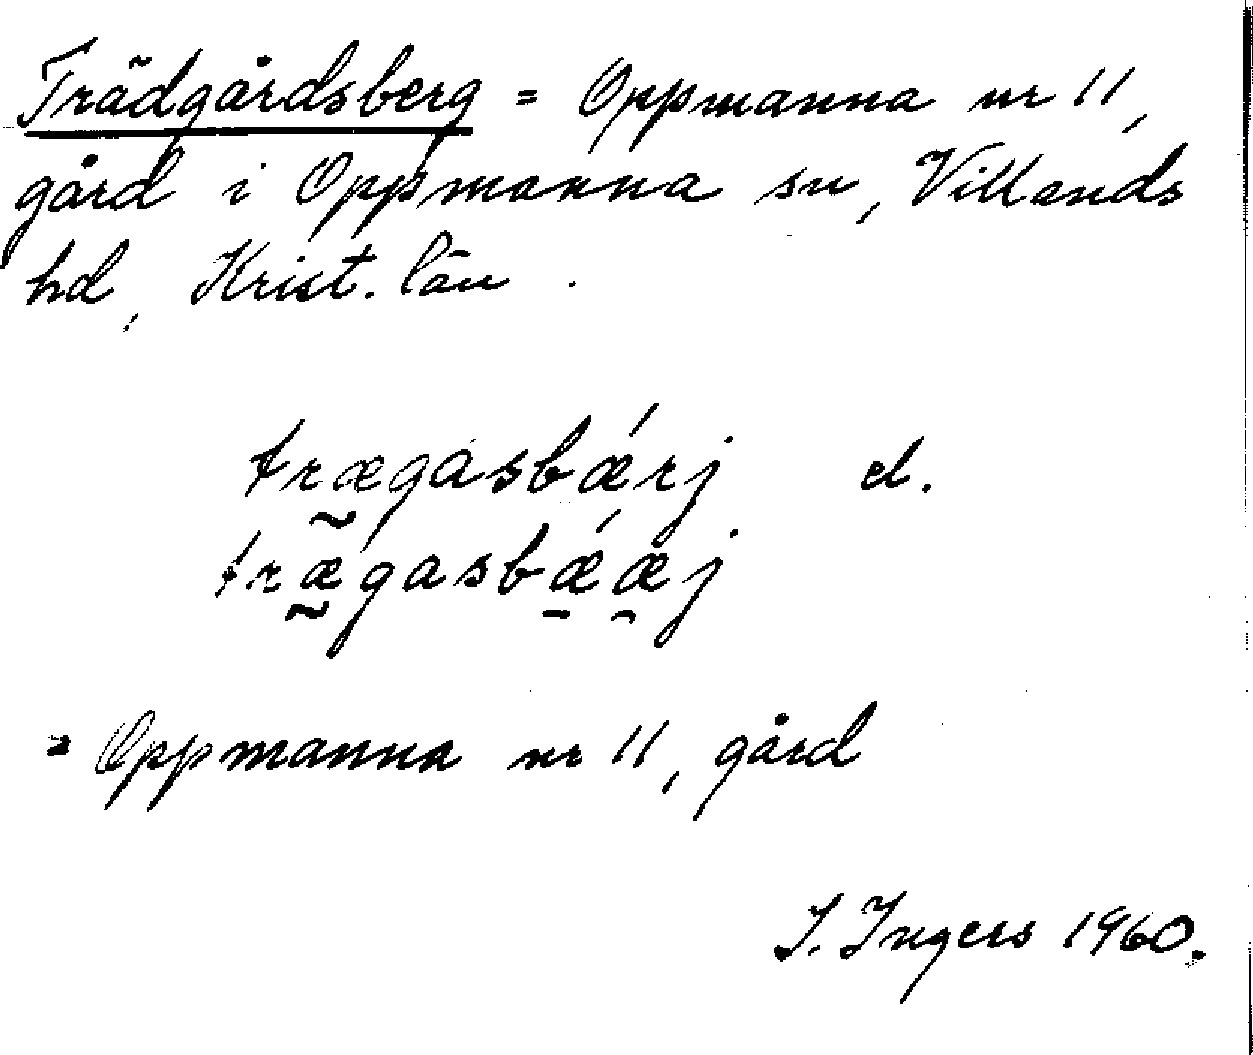 Trädgårdsberg = Oppmanna nr 11,
gård i Oppmanna sn, Villands
hd, Krist. län.
træ̰gasbǽrj el.
træ̰gasbǽ̱æ̯j
= Oppmanna nr 11, gård
I. Ingers 1960.